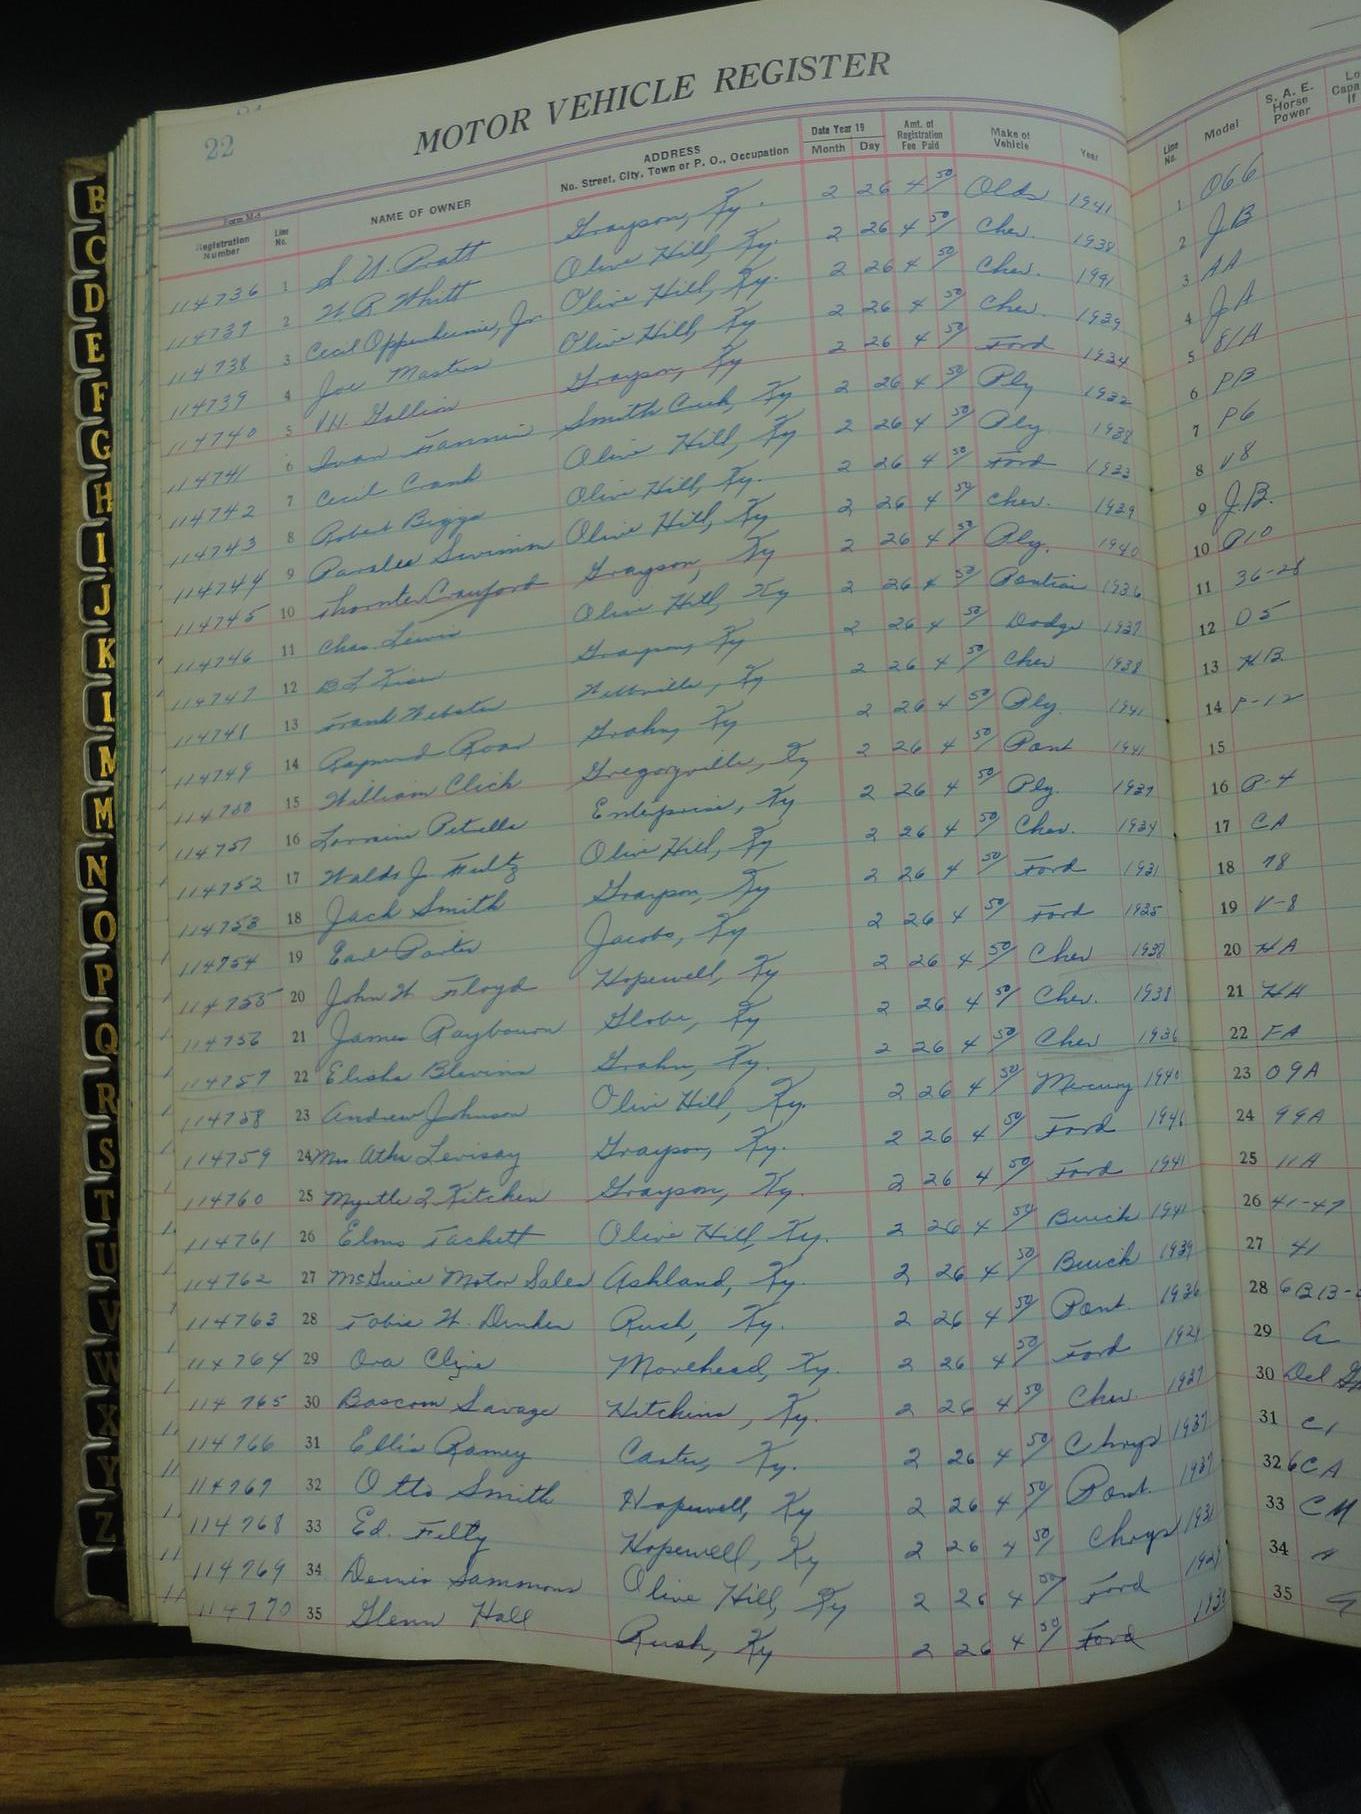 22
MOTOR VEHICLE REGISTER
Registration Number Line No. NAME OF OWNER ADDRESS No. Street, City, Town or P. O., Occupation Date Year 19 Month Day Amt. of Registration Fee Paid Make of Vehicle Year Line No. Model S. A. E. Horse Power
114736 1 Pratt Grayson, Ky. 2 26 4 50 Olds 1941 1 066
114737 2 W. R. Whitt Olive Hill, Ky. 2 26 4 50 Chev. 1938 2 JB
114738 3 Cecil Oppenheimer, Jr. Olive Hill, Ky. 2 26 4 50 Chev. 1941 3 AA
114739 4 Joe Masters Olive Hill, Ky 2 26 4 50 Chev. 1939 4 JA
114740 5 Gollion Grayson, Ky 2 26 4 50 Ford 1934 5 81A
114741 6 Ivan Fannin Smith Creek, Ky 2 26 4 50 Ply 1932 6 PB
114742 7 Cecil Crank Olive Hill, Ky 2 26 4 50 Ply. 1938 7 P6
114743 8 Robert Biggs Olive Hill, Ky. 2 26 4 50 Ford 1933 8 V8
114744 9 Olive Hill, Ky 2 26 4 50 Chev. 1939 9 J.B.
114745 10 Crawford Grayson, Ky 2 26 4 50 Ply. 1940 10 P10
114746 11 Chas. Lewis Olive Hill, Ky 2 26 4 50 Pontiac 1936 11 36-28
114747 12 B L Kiser Grayson, Ky 2 26 4 50 Dodge 1937 12 D5
114748 13 Frank Webster Ky 2 26 4 50 Chev 1938 13 HB
114749 14 Raymond Roar Grahn, Ky 2 26 4 50 Ply. 1941 14 P-12
114750 15 William Click Gregoryville, Ky 2 26 4 50 Pont 1941 15
114751 16 Enterprise, Ky 2 26 4 50 Ply. 1937 16 P-4
114752 17 Waldo J. Fultz Olive Hill, Ky 2 26 4 50 Chev. 1934 17 CA
114753 18 Jack Smith Grayson, Ky 2 26 4 50 Ford 1931 18 78
114754 19 Earl Porter Jacobs, Ky 2 26 4 50 Ford 1935 19 V-8
114755 20 John W Floyd Hopewell, Ky 2 26 4 50 Chev 1938 20 HA
114756 21 James Raybourn Globe, Ky 2 26 4 50 Chev. 1938 21 HA
114757 22 Elisha Blevins Grahn, Ky. 2 26 4 50 Chev 1936 22 FA
114758 23 Andrew Johnson Olive Hill, Ky. 2 26 4 50 Mercury 1940 23 09A
114759 24 Mrs. Levisay Grayson, Ky. 2 26 4 50 Ford 1946 24 99A
114760 25 Myrtle Kitchen Grayson, Ky. 2 26 4 50 Ford 1941 25 11A
114761 26 Elmo Tackett Olive Hill, Ky. 2 26 4 50 Buick 1941 26 41-47
114762 27 McGuire Motor Sales Ashland, Ky. 2 26 4 50 Buick 1939 27 41
114763 28 W. Rush, Ky. 2 26 4 50 Pont. 1936 28
114764 29 Ora Cline Morehead, Ky. 2 26 4 50 Ford 1929 29 a
114765 30 Bascom Savage Hitchins, Ky. 2 26 4 50 Chev. 1937 30 Del
114766 31 Ellis Ramey Carter, Ky. 2 26 4 50 Chrys 1937 31 C1
114767 32 Otto Smith Hopewell, Ky 2 26 4 50 Pont. 1937 32 6CA
114768 33 Ed. Felty Hopewell, Ky 2 26 4 50 Chrys 1931 33 CM
114769 34 Dennis Sammons Olive Hill, Ky 2 26 4 50 Ford 34
114770 35 Glenn Hall Rush, Ky 2 26 4 50 Ford 35
B
C
D
E
F
G
H
I
J
K
L
M
M
N
O
P
Q
R
S
T
U
V
W
X
Y
Z